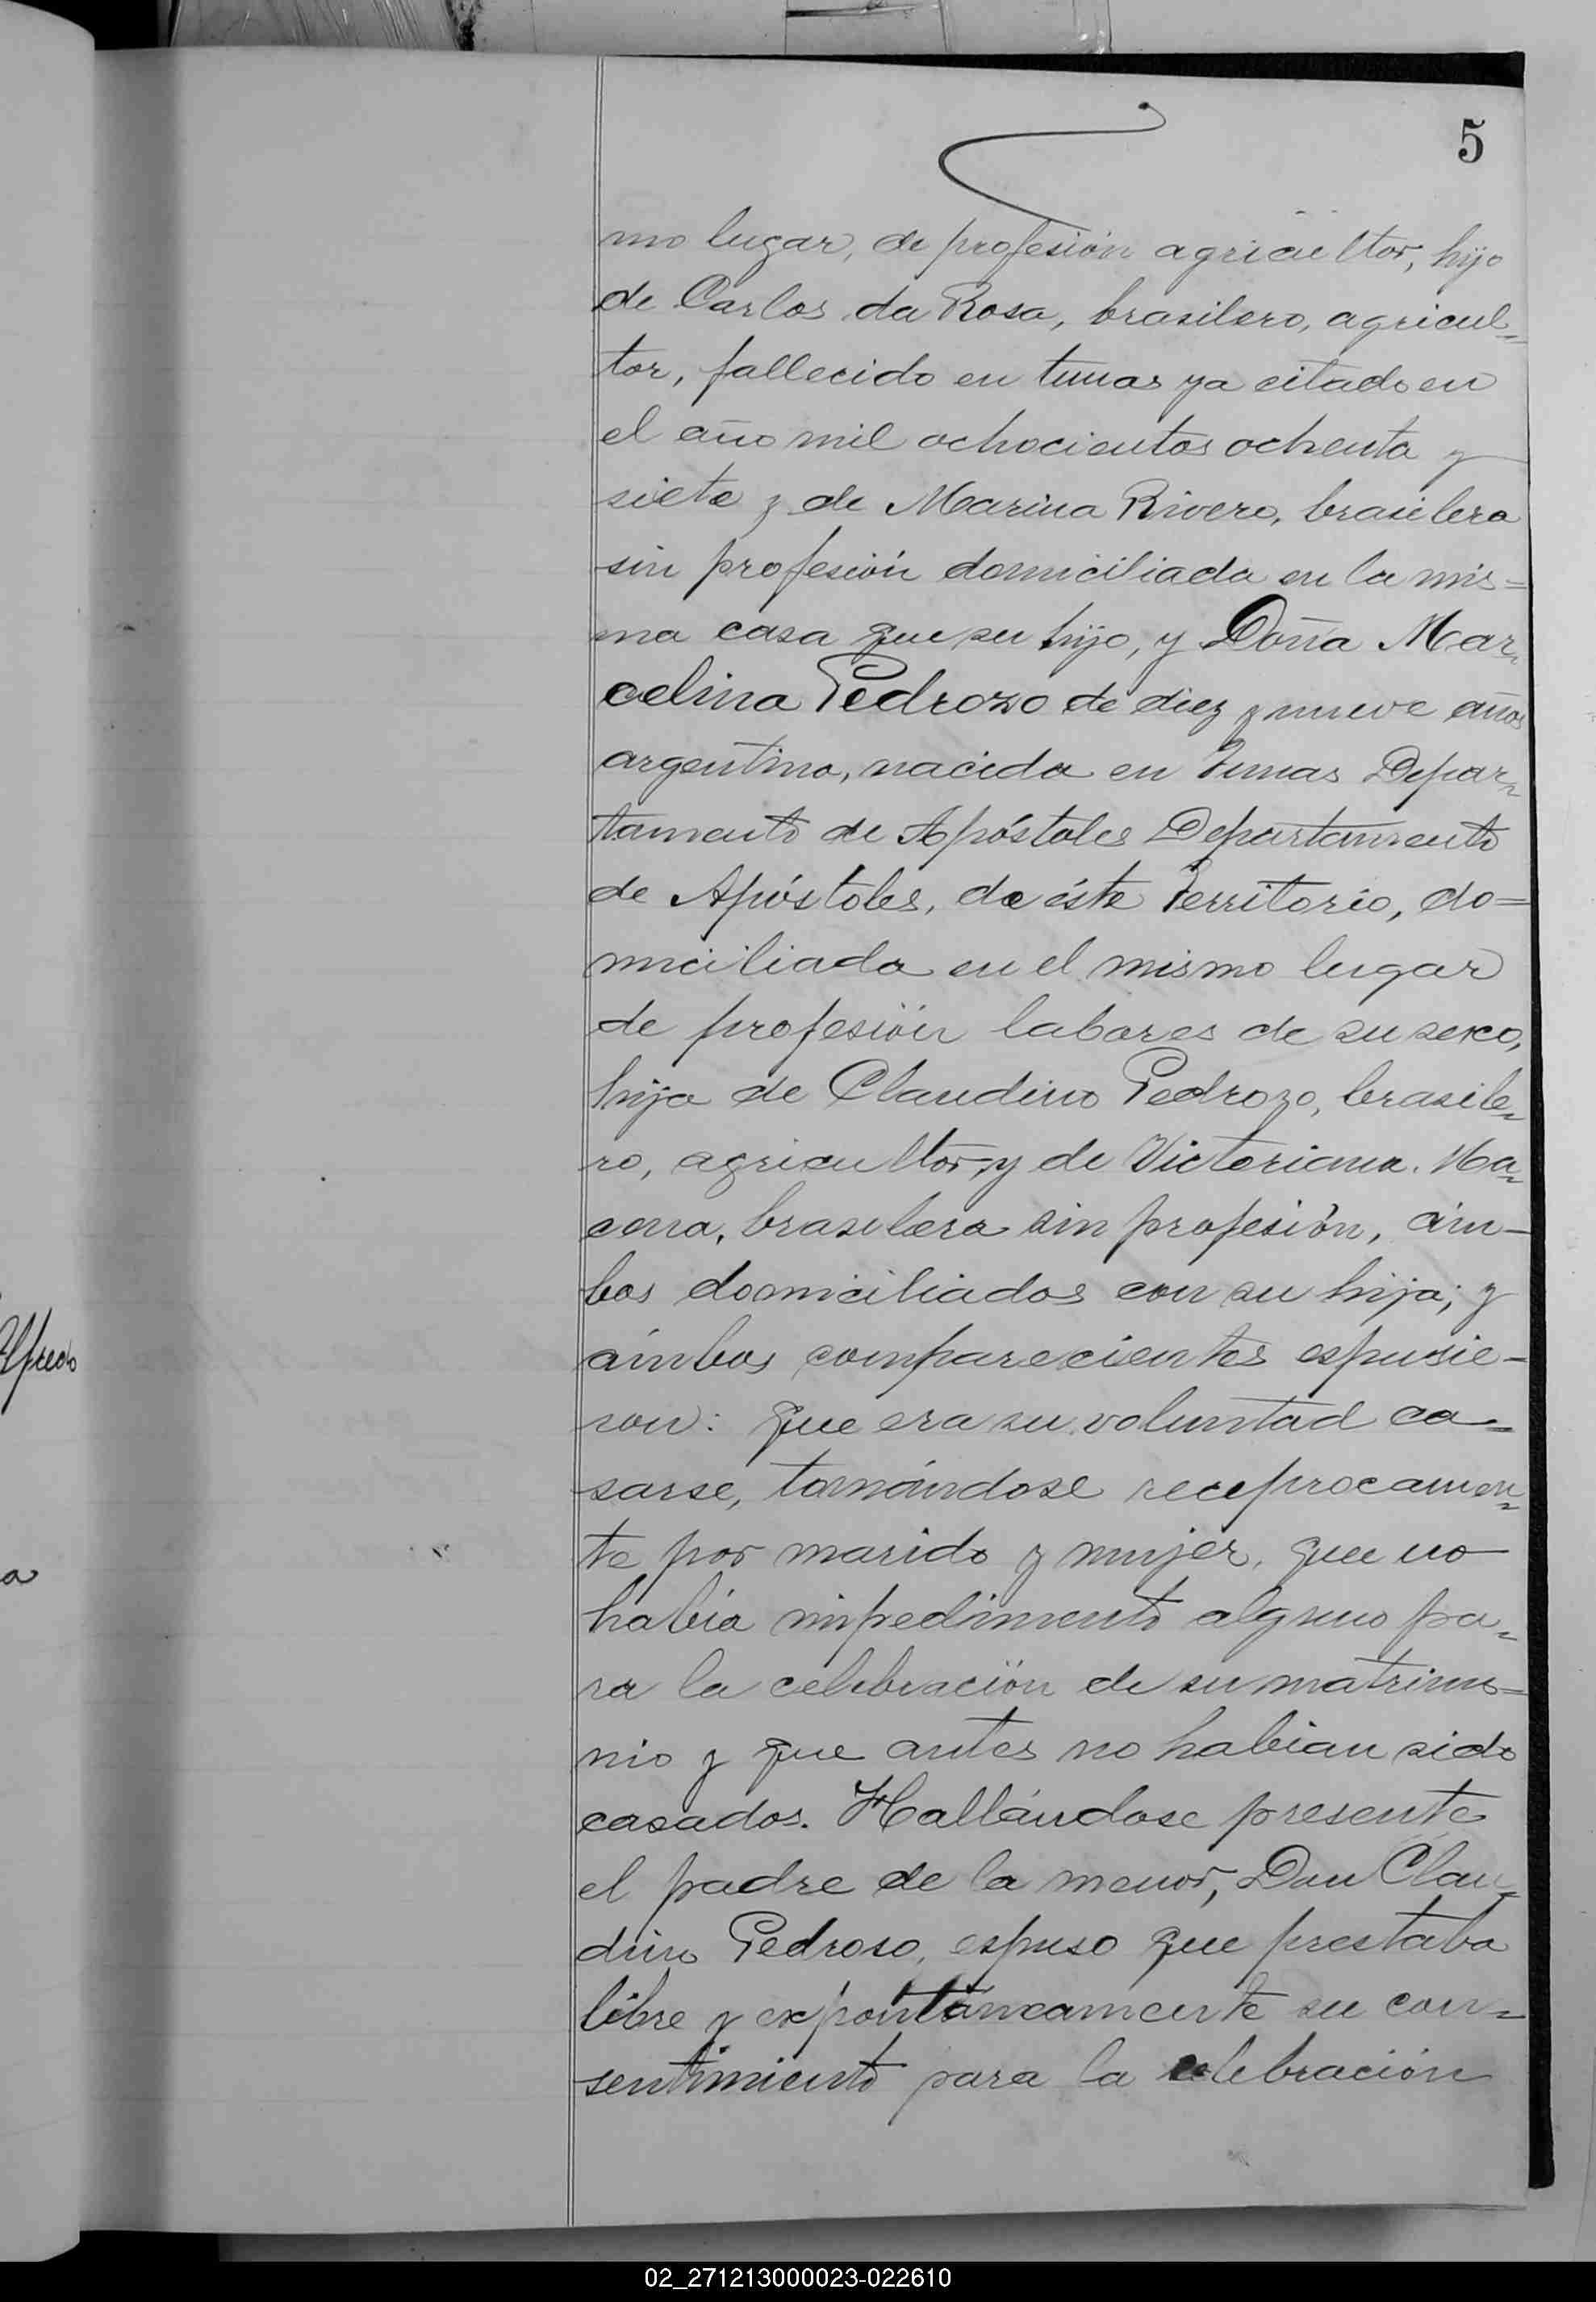 5
mo lugar, de profesión agricultor, hijo
de Carlos da Rosa, brasilero, agricul=
tor, fallecido en tunas ya citado en
el año mil ochocientos ochenta y
siete y de Marina Rivero, brasilera
sin profesión domiciliada en la mis=
ma casa que su hijo, y Doña Mar=
celina Pedrozo de diez y nueve años
argentina, nacida en Tunas Depar=
tamento de Apóstoles Departamento
de Apóstoles, de éste Territorio, do=
miciliada en el mismo lugar
de profesión labores de su sexo,
hija de Claudino Pedrozo, brasile=
ro, agricultor, y de Victoriana Ma=
cena, brasilera sin profesión, ám-
bos domiciliados con su hija; y
ámbos comparecientes espusie-
ron: que era su voluntad ca=
sarse, tomándose reciprocamen=
te por marido y mujer, que no
había impedimento alguno pa=
ra la celebración de su matrimo=
nio y que antes no habian sido
casados. Hallándose presente
el padre de la menor, Don Clau=
dino Pedroso, espuso que prestaba
libre y expontáneamente su con=
sentimiento para la celebración
Alfredo
a
02_271213000023-022610